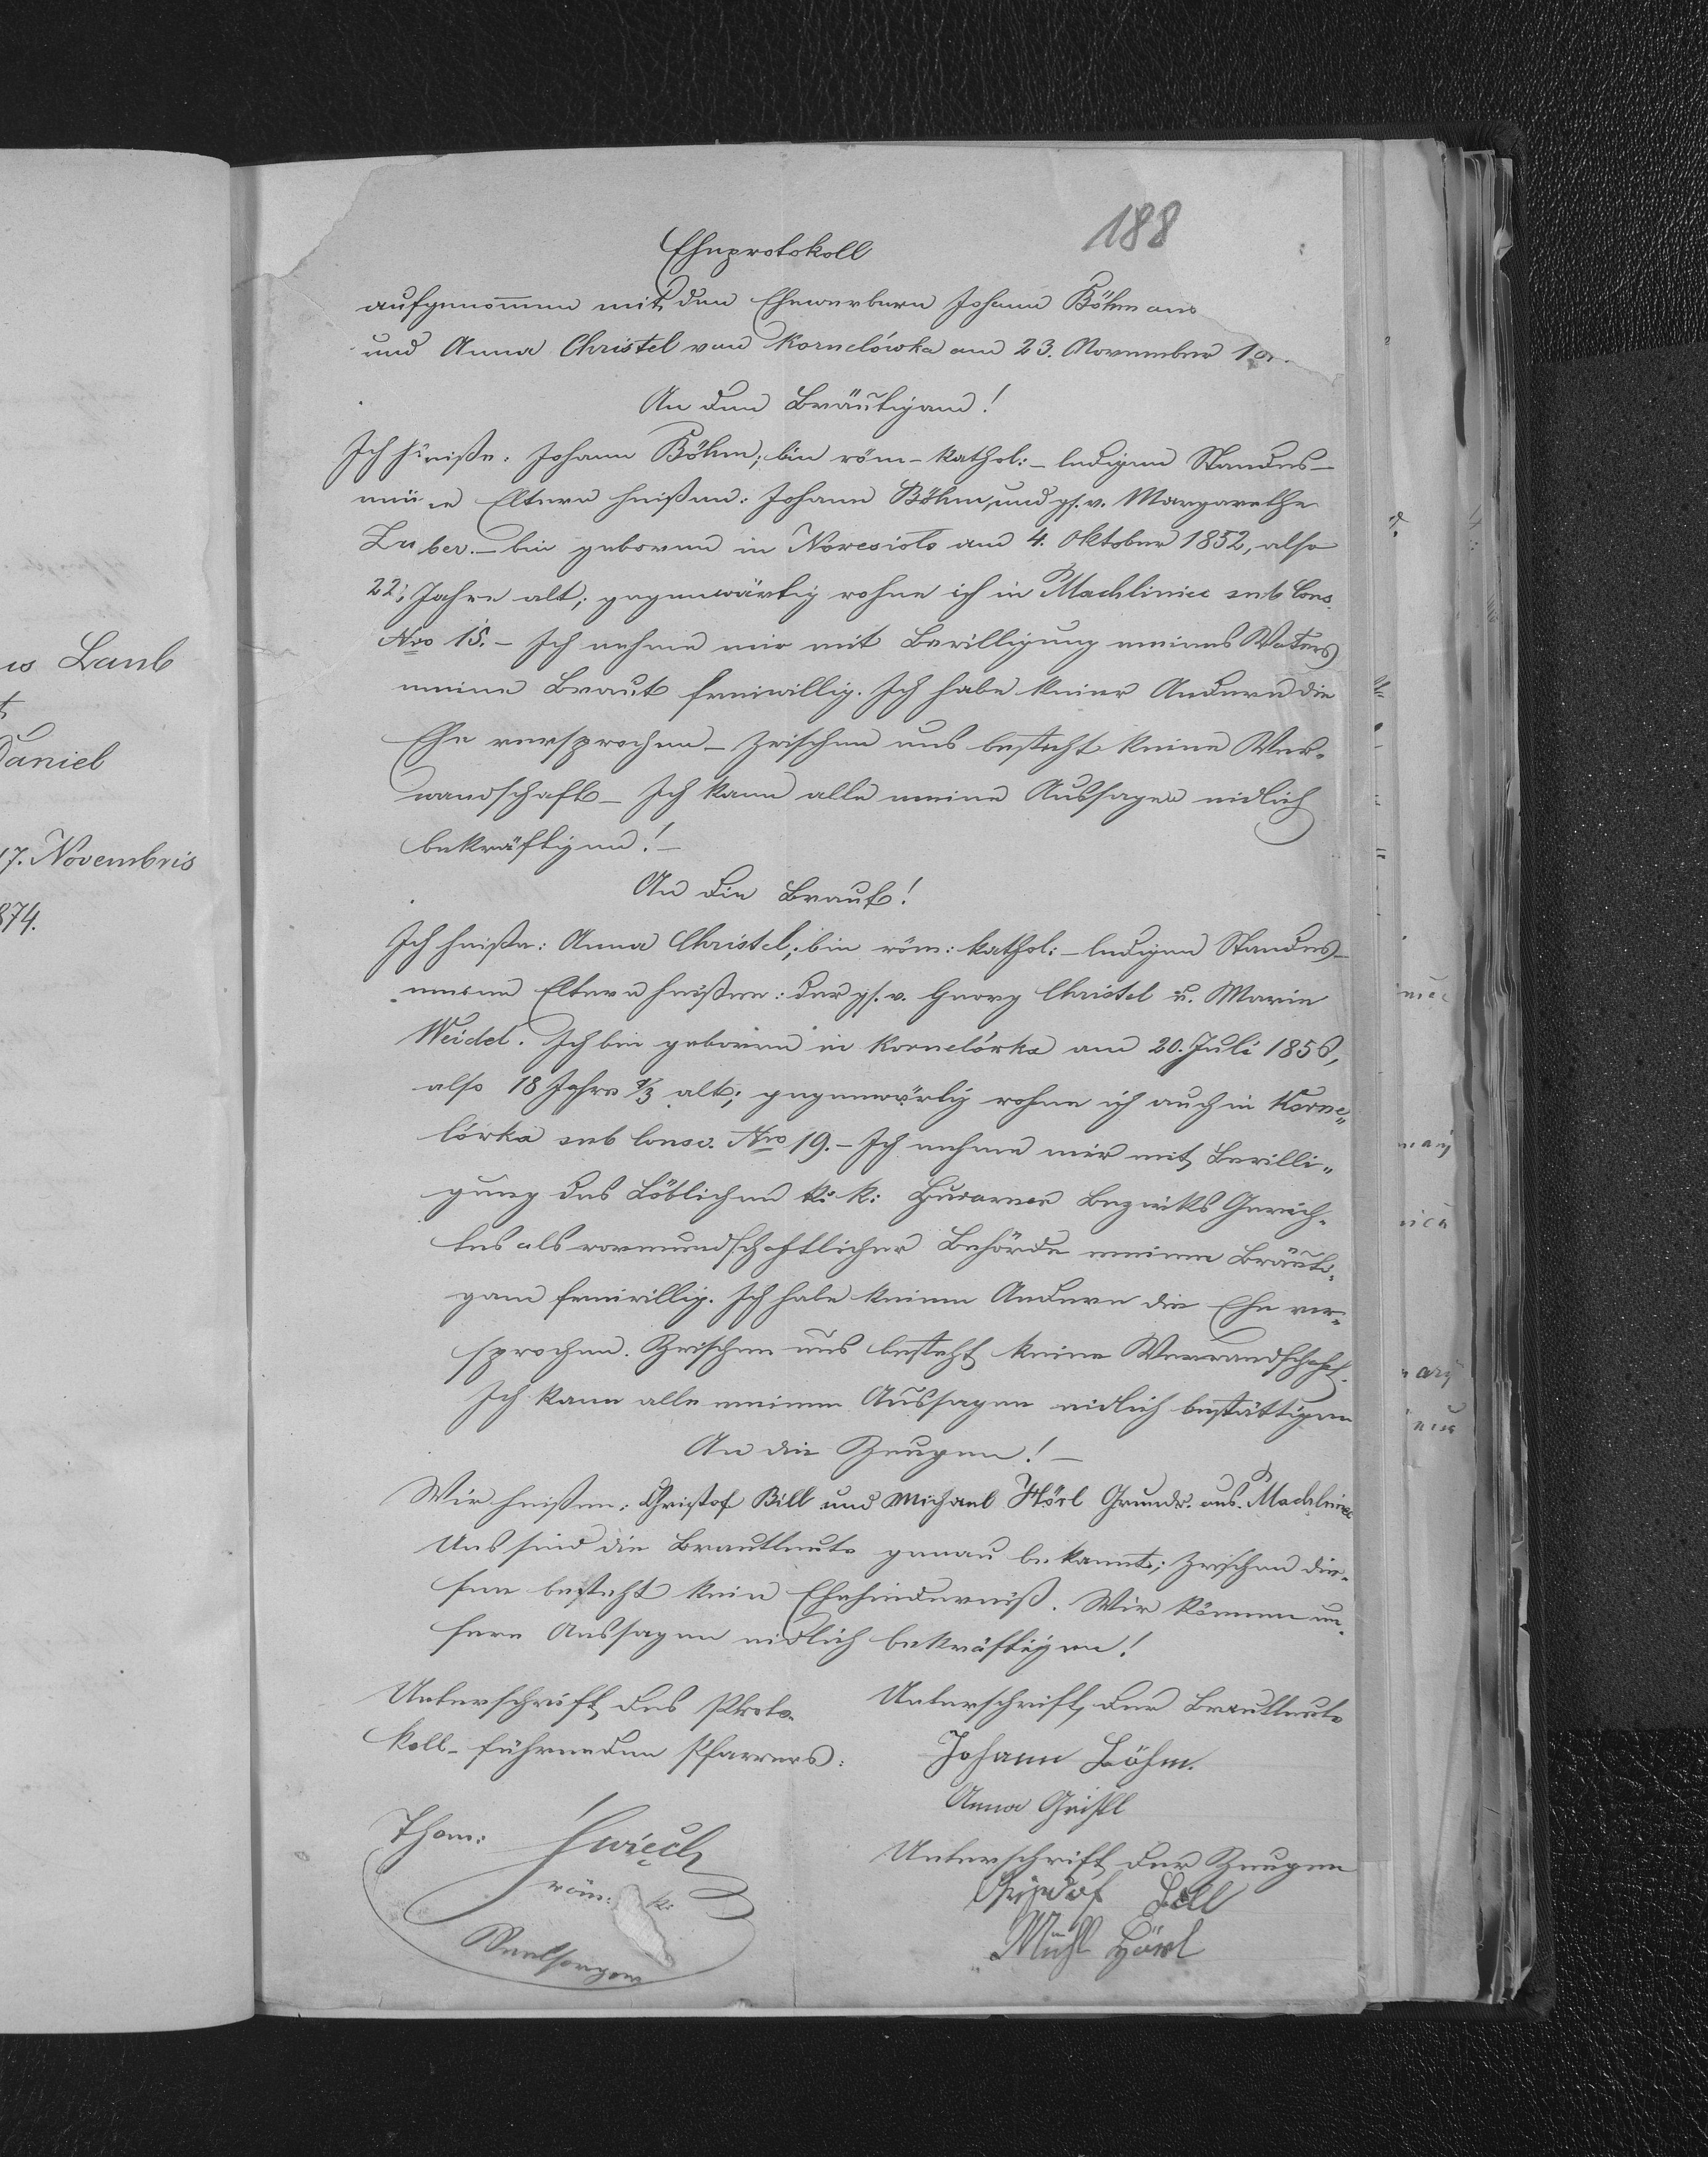 188
Eheprotokoll
aufgenommen mit den Ehewerbern Johann Böhm aus
und Anna Christel von Kornelówka am 23. November
An den Bräutigam!
Ich heiße: Johann Böhm; bin röm-kathol:- ledigen Standes-
meine Eltern heißen: Johann Böhm, und gs. v. Margarethe
Zuber.- bin geboren in Nowesioło am 4. Oktober 1852, also
22; Jahre alt; gegenwärtig wohne ich in Machliniec sub Cons.
Nro 15.- Ich nehme mir mit Bewilligung meines Vaters
meine Braut freiwillig. Ich habe keiner Andern die
Ehe versprochen- Zwischen uns besteht keine Ver-
wandschaft- Ich kann alle meine Aussagen eidlich
bekräftigen!-
An die Braut!
Ich heiße: Anna Christel; bin röm: kathol:- ledigen Standes-
meine Eltern heißen: der gs. v. Georg Christel u. Marie
Weidel. Ich bin geboren in Kornelówka am 20. Juli 1856,
also 18 Jahre 1/3 alt; gegenwärtig wohne ich auch in Korne„
lówka sub Consc. Nro 19.- Ich nehme mir mit Bewilli„
gung des Löblichen k: k: Bezirks Gerich-
tes als vormundschaftlicher Behörde meinen Bräuti-
gam freiwillig. Ich habe keinem Andern die Ehe ver-
sprochen. Zwischen uns besteht keine Verwandschaft.
Ich kann alle meinen Aussagen eidlich bestättigen
An die Zeugen!-
Wir heißen: Christof Bill und Michael Hörl Grundr. aus. Machliniec
Uns sind die Brautleute genau bekannt; zwischen die-
sen besteht kein Ehehinderniß. Wir können un-
sere Aussagen eidlich bekräftigen!
Unterschrift des Proto-
koll- führenden Pfarrers:
Thom: Świech
röm: k:
Seelsorger
Unterschrift der Brautleute
Johann Böhm.
Anna Christl
Unterschrift der Zeugen
Christof Bill
Michl Hörl
Laub
Daniel
17. Novembris
874.